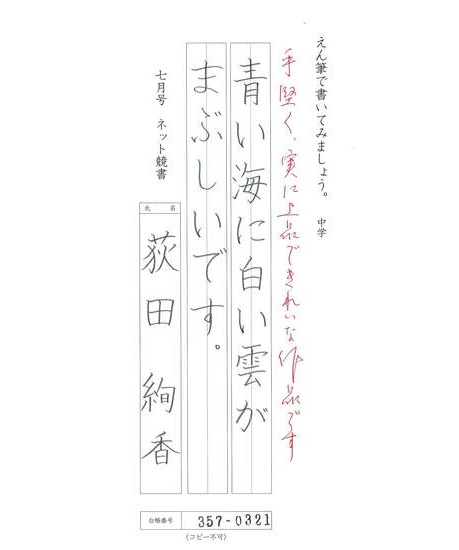 えん筆で書いてみましょう。 中学
手堅く、実に上品できれいな作品です
青い海に白い雲が
まぶしいです。
七月号 ネット競書
氏名
荻田 絢香
台帳番号 357-0321
(コピー不可)